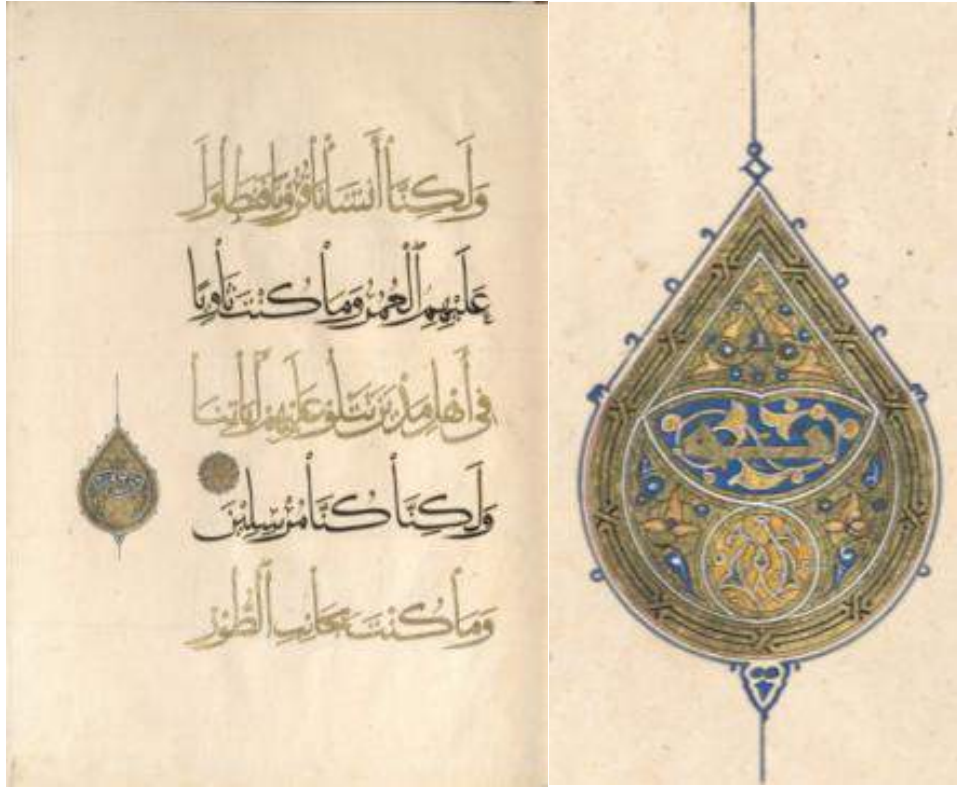 وَلَكِنَّا أَنْشَأْنَا قُرُونًا فَتَطَاوَلَ
عَلَيْهِمُ الْعُمُرُ وَمَا كُنْتَ ثَاوِيًا
فِي أَهْلِ مَدْيَنَ تَتْلُو عَلَيْهِمْ آيَاتِنَا
وَلَكِنَّا كُنَّا مُرْسِلِينَ
وَمَا كُنْتَ بِجَانِبِ الطُّورِ